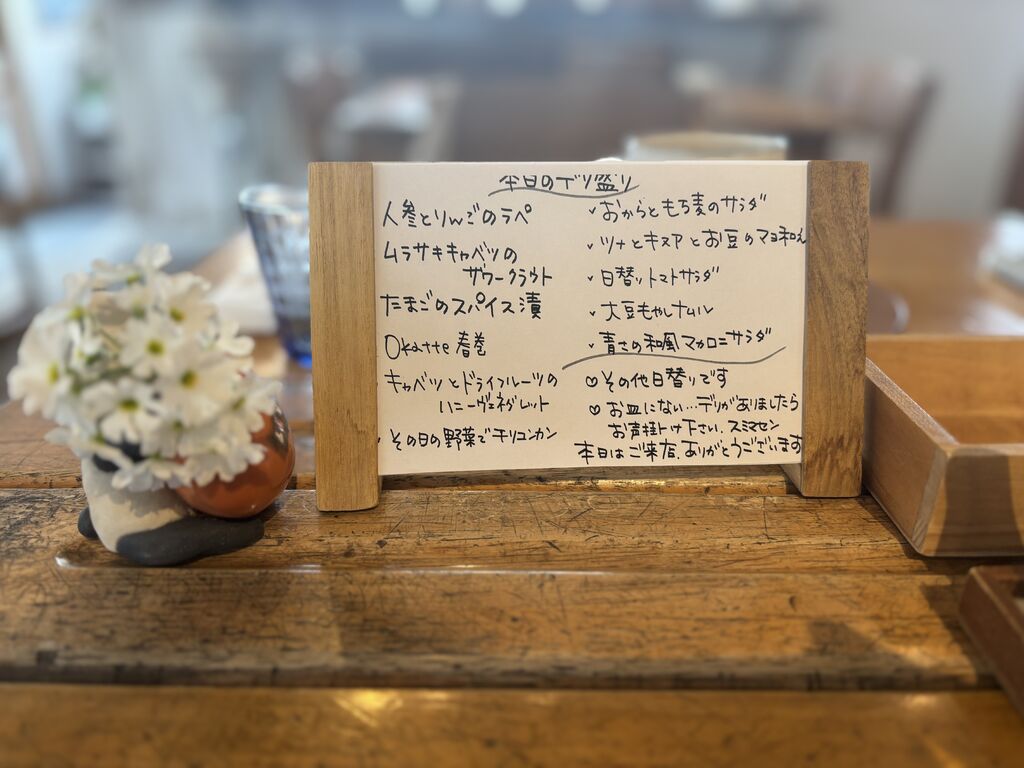 本日のデリ盛り
人参とりんごのラペ
ムラサキキャベツの
ザワークラウト
たまごのスパイス漬
Okatte 春巻
キャベツとドライフルーツの
ハニーヴィネグレット
その日の野菜でチリコンカン
おからともち麦のサラダ
ツナとキヌアとお豆のマヨ和え
日替りトマトサラダ
大豆もやしナムル
青さの和風マカロニサラダ
♡ その他日替りです
♡ お皿にない…デリがありましたら
お声掛け下さい、スミマセン
本日はご来店、ありがとうございます